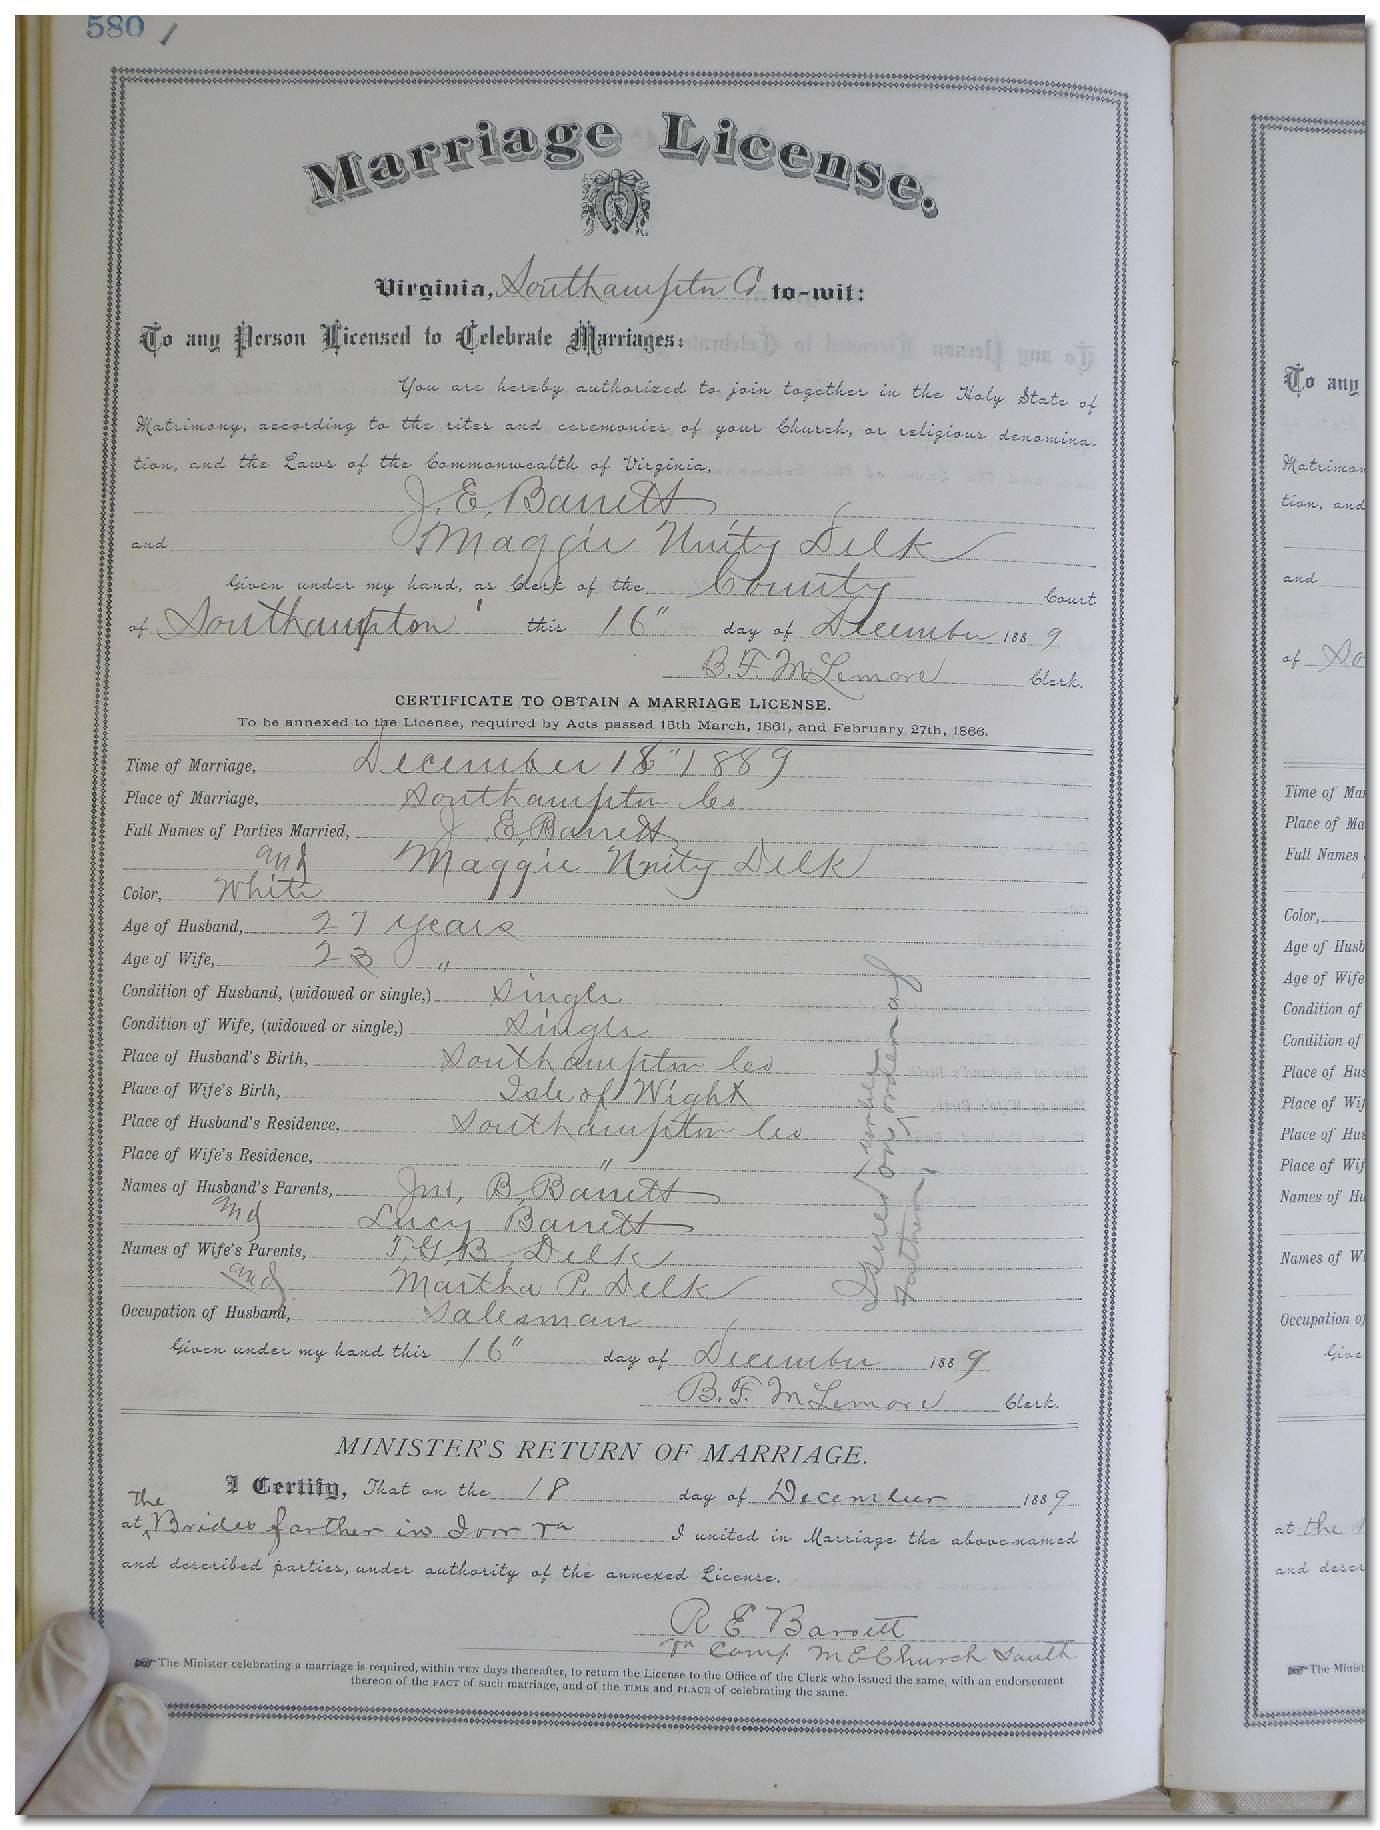 580 /
Marriage License.
Virginia, Southampton C to-wit:
To any Person Licensed to Celebrate Marriages:
You are hereby authorized to join together in the Holy State of
Matrimony, according to the rites and ceremonies of your Church, or religious denomina-
tion, and the Laws of the Commonwealth of Virginia,
J. E. Barrett
and Maggie Unity Delk
Given under my hand, as Clerk of the County Court
of Southampton this 16" day of December 1889
B. F. McLemore Clerk.
CERTIFICATE TO OBTAIN A MARRIAGE LICENSE.
To be annexed to the License, required by Acts passed 15th March, 1861, and February 27th, 1866.
Time of Marriage, December 18" 1889
Place of Marriage, Southampton Co
Full Names of Parties Married, J. E. Barrett
and Maggie Unity Delk
Color, White
Age of Husband, 27 years
Age of Wife, 23 "
Condition of Husband, (widowed or single,) Single
Condition of Wife, (widowed or single,) Single
Place of Husband's Birth, Southampton Co
Place of Wife's Birth, Isle of Wight
Place of Husband's Residence, Southampton Co
Place of Wife's Residence, "
Names of Husband's Parents, Jno. B. Barrett
and Lucy Barrett
Names of Wife's Parents, T. G. B. Delk
and Martha P. Delk
Occupation of Husband, Salesman
Given under my hand this 16" day of December 1889
B. F. McLemore Clerk.
Issued on verbal order of
Father
MINISTER'S RETURN OF MARRIAGE.
I Certify, That on the 18 day of December 1889
at the Brides farther in I united in Marriage the above-named
and described parties, under authority of the annexed License.
R E Barrett
Comp M E Church South
The Minister celebrating a marriage is required, within TEN days thereafter, to return the License to the Office of the Clerk who issued the same, with an endorsement
thereon of the FACT of such marriage, and of the TIME and PLACE of celebrating the same.
To any
Matrimon
tion, and
and
of So
Time of Ma
Place of Ma
Full Names
Color,
Age of Husb
Age of Wife
Condition of
Condition of
Place of Hus
Place of Wif
Place of Hus
Place of Wif
Names of Hu
Names of Wi
Occupation of
Give
at the
and descr
The Minist